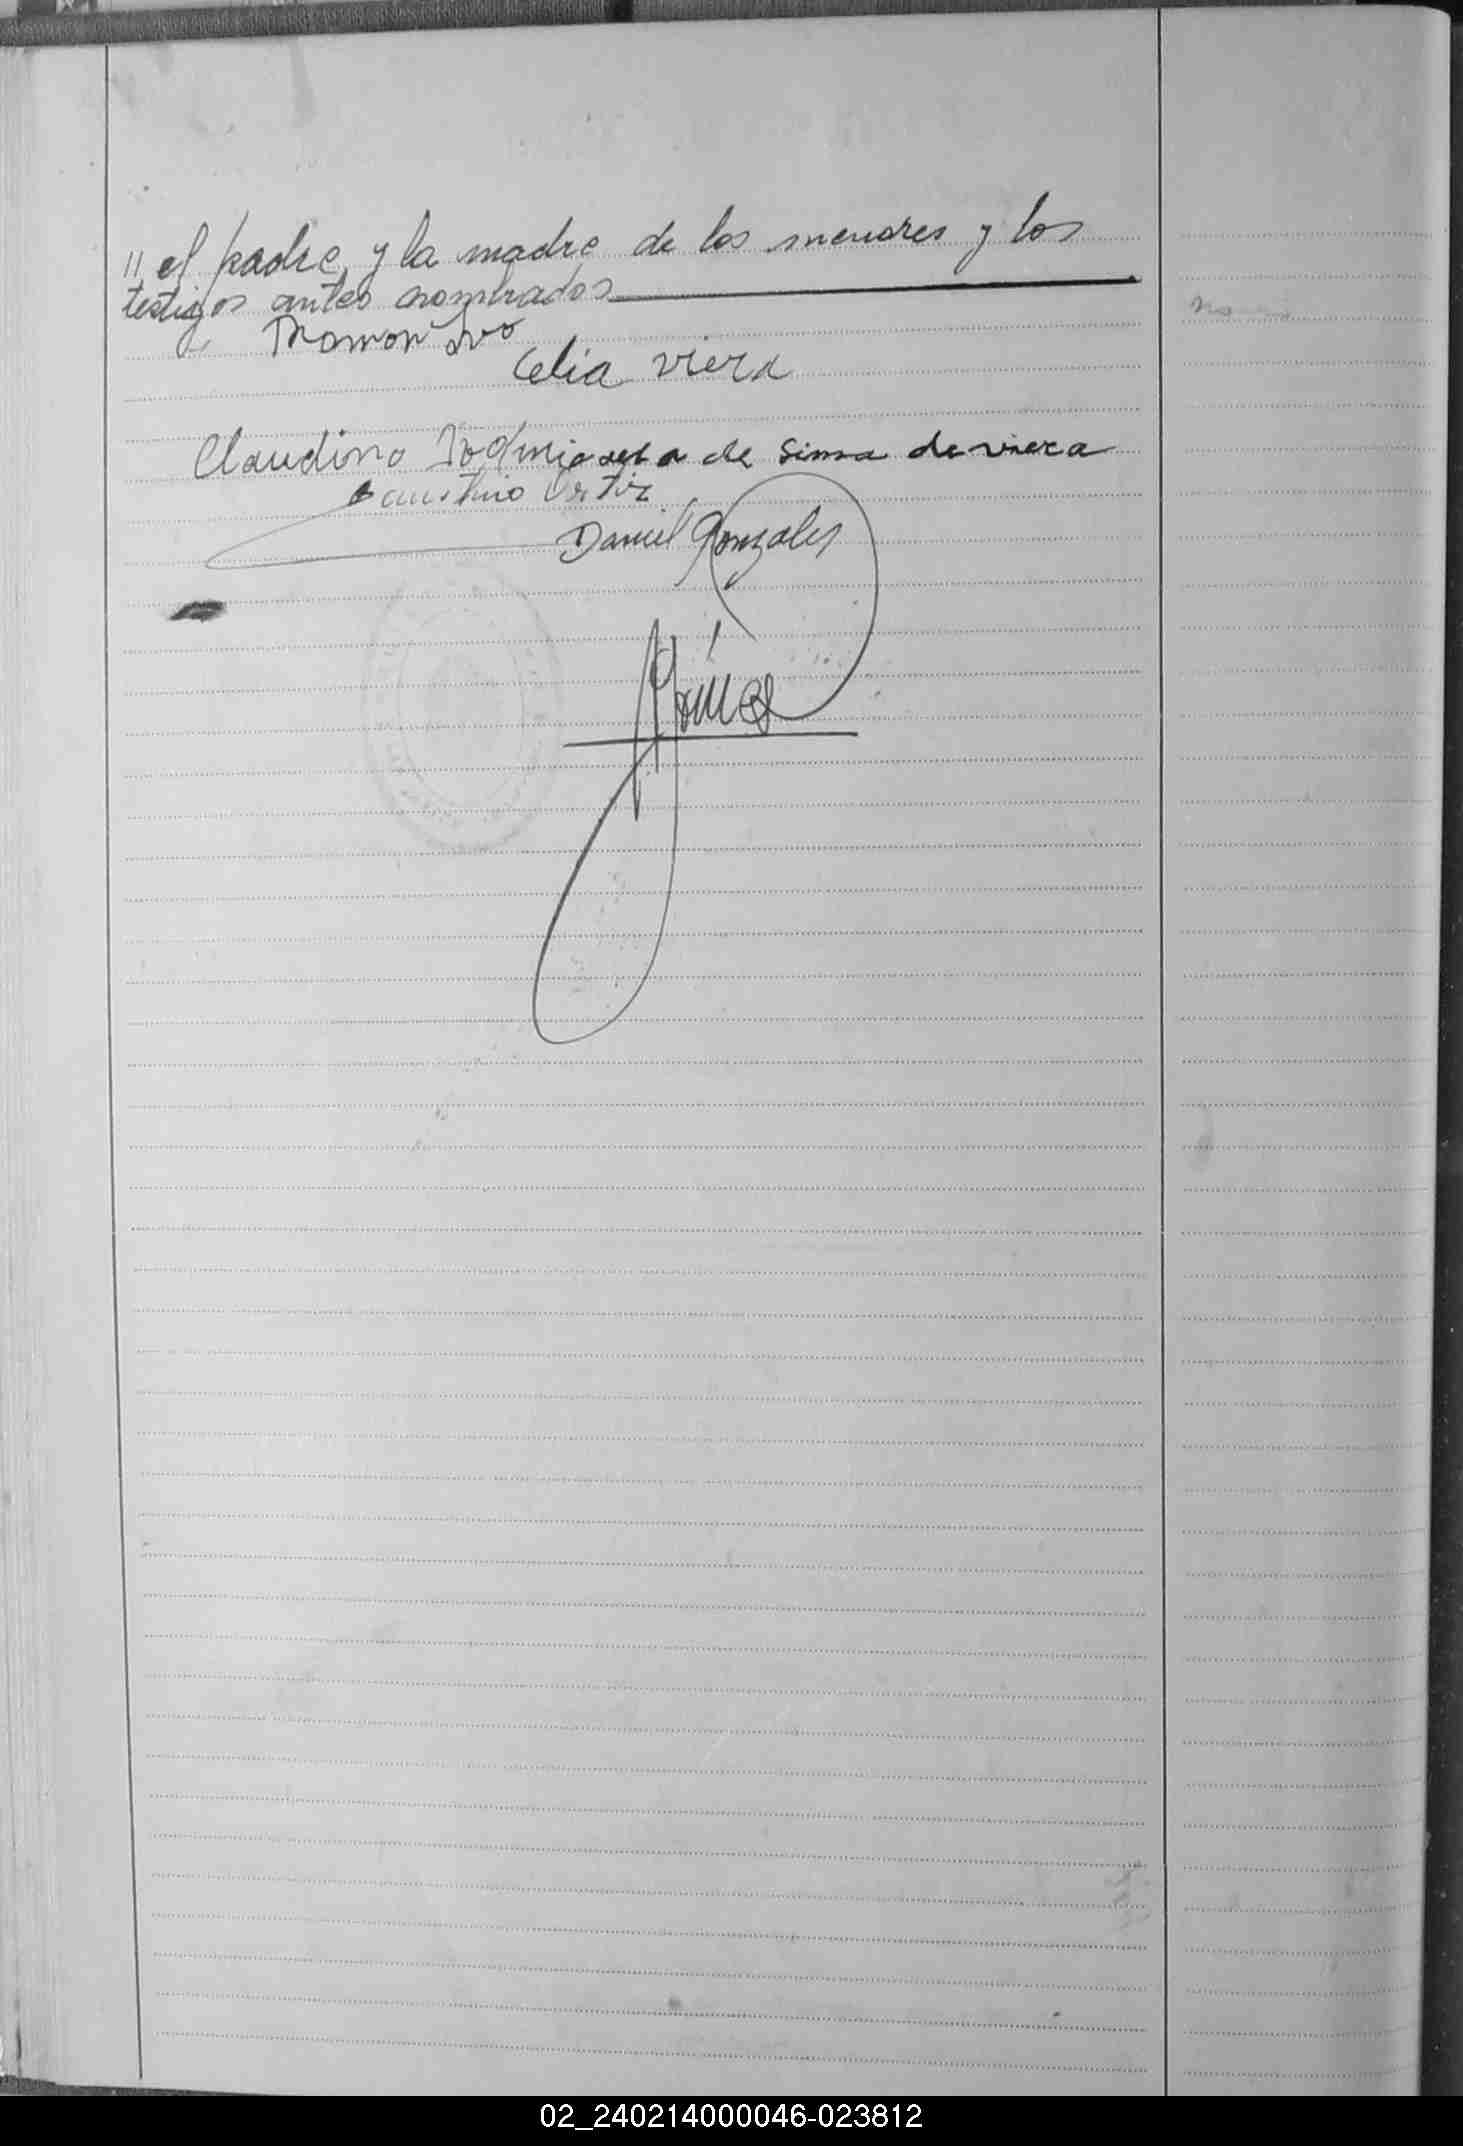 " el padre, y la madre de los menores y los
testigos antes nombrados
Ramon
Celia viera
Claudino de Sinsa de viera
Faustino Ortiz
Daniel Gonzales
02_240214000046-023812